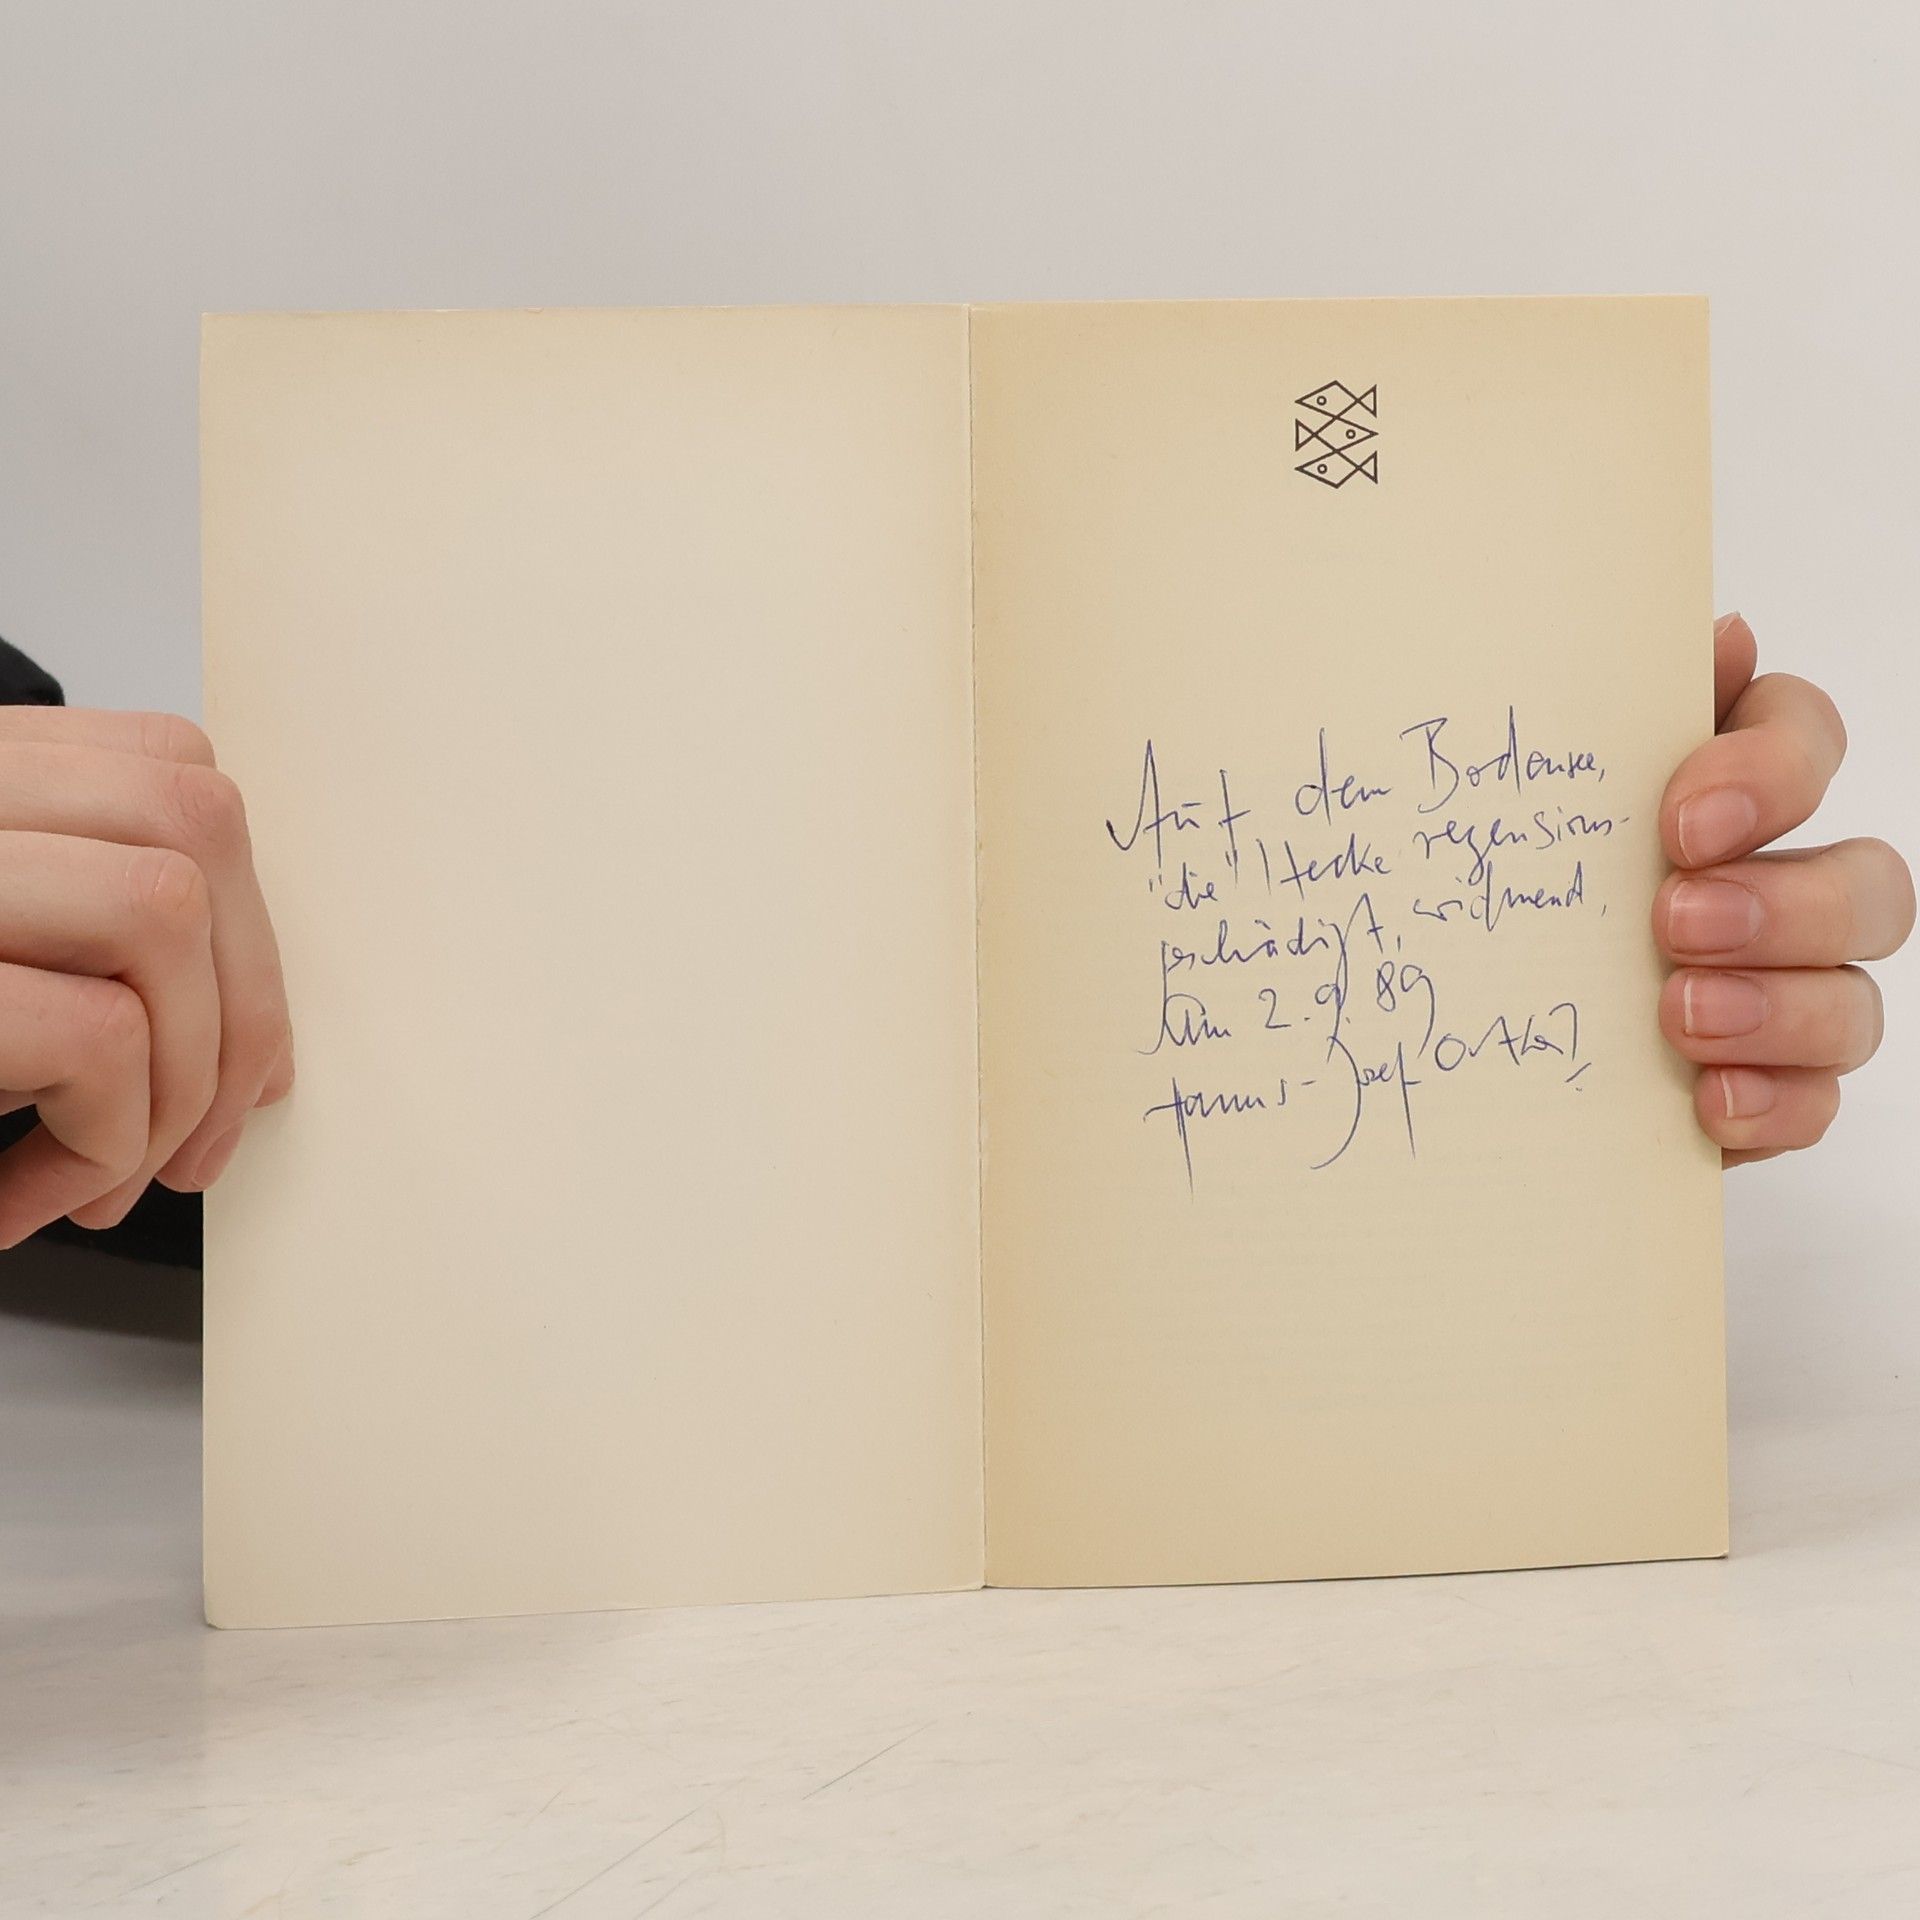 Auf dem Bodensee,
"die" Hecke rezensions-
geschädigt, widmend,
Am 2.9.89
Hanns-Josef Ortheil